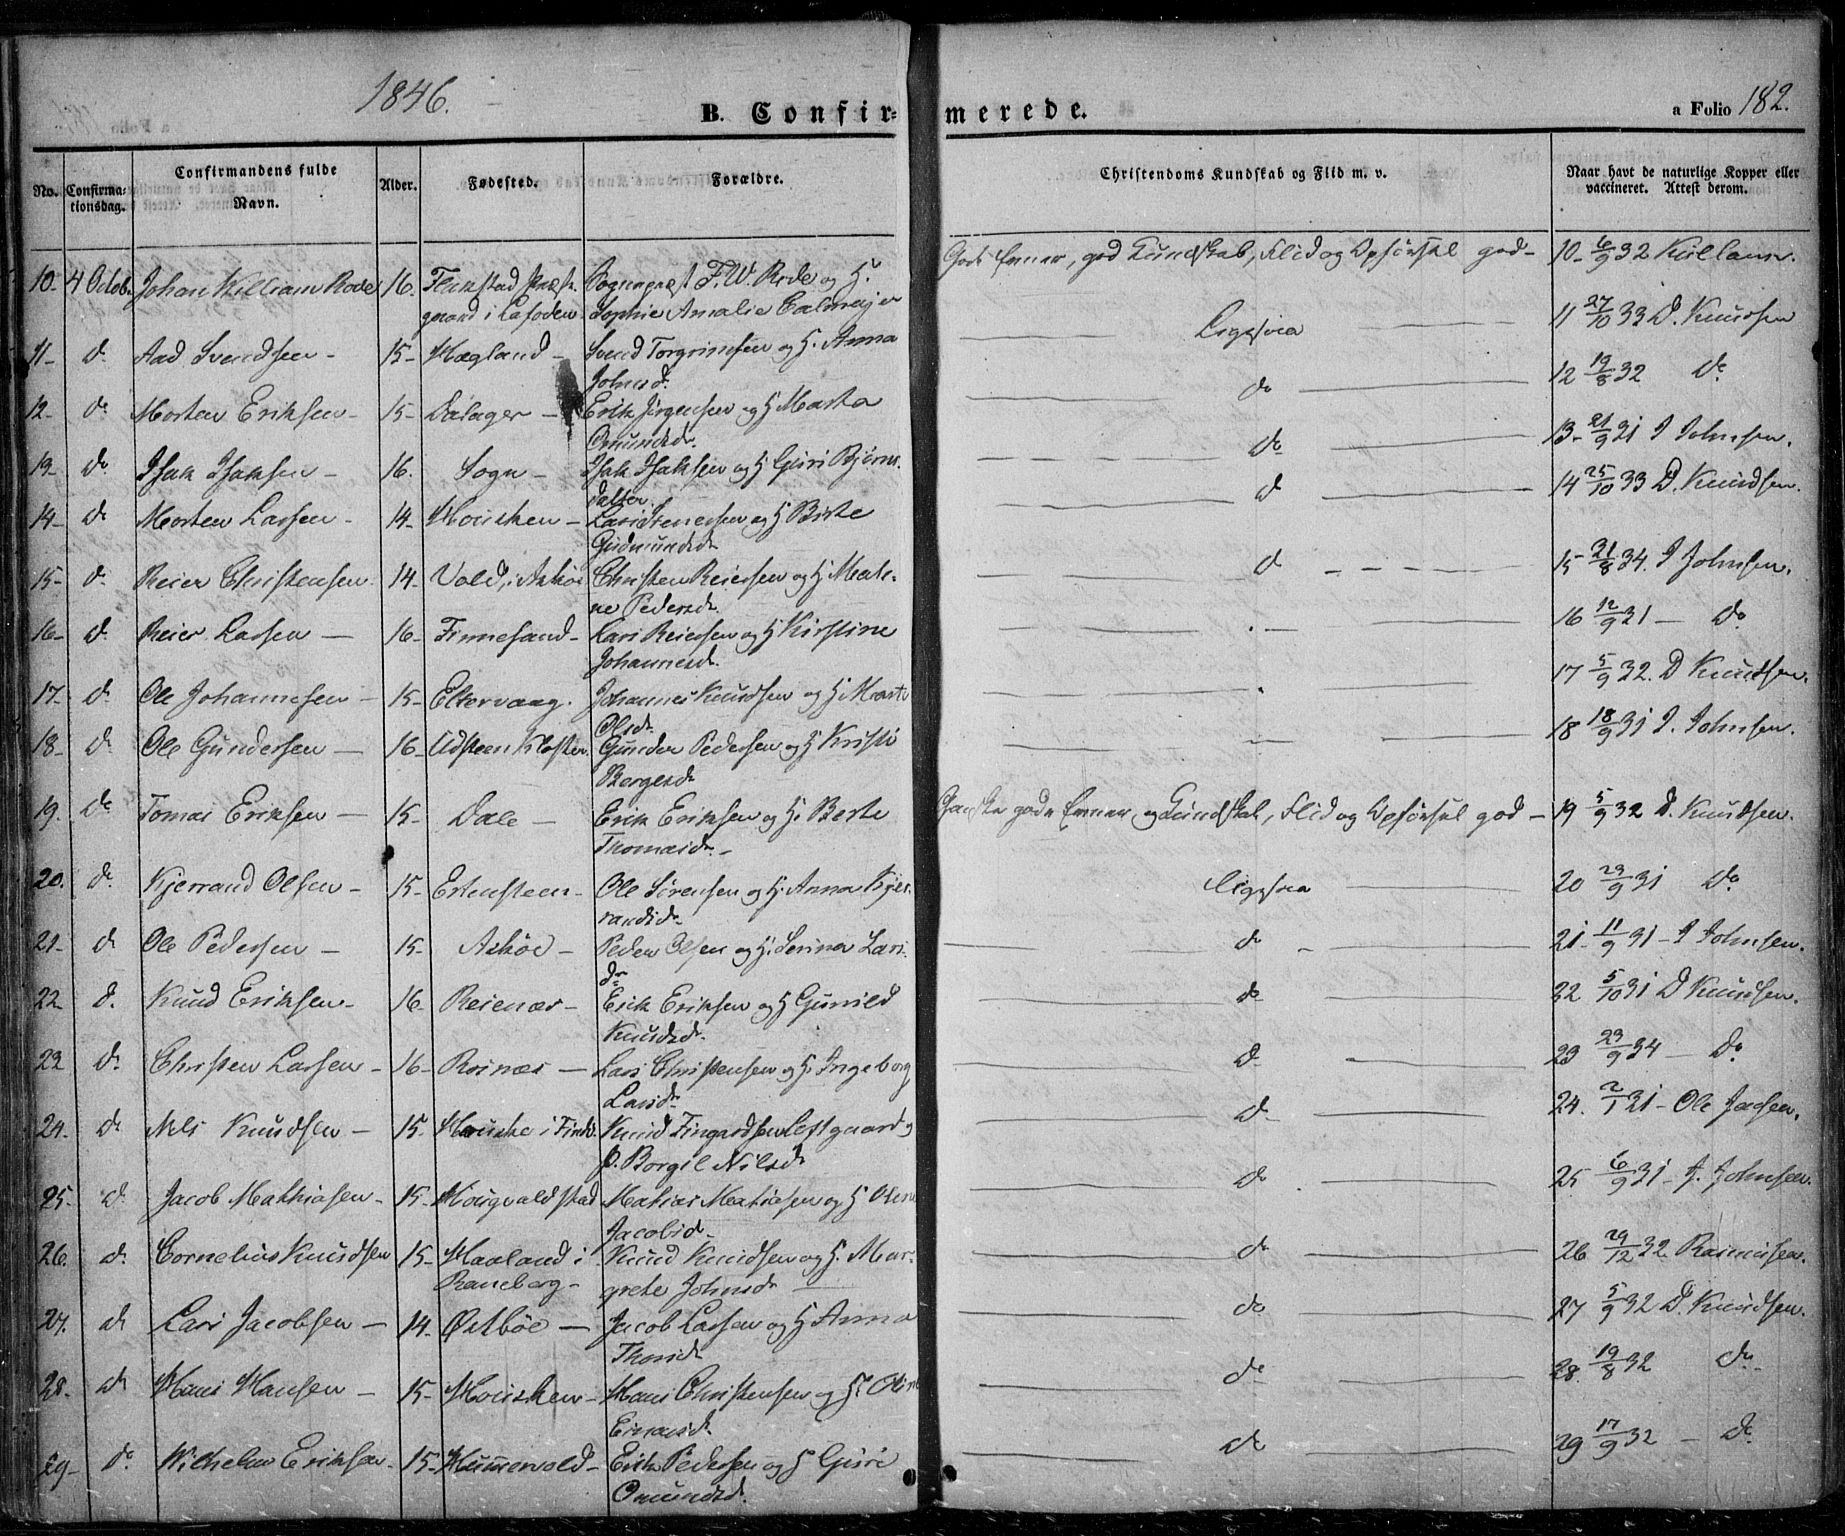 1846.
B. Confir=
merede.
a Folio 182.
No.
Confirma-
tionsdag.
Confirmandens fulde
Navn.
Alder.
Fødested.
Forældre.
Christendoms Kundskab og Flid m. v.
Naar havt de naturlige Kopper eller
vaccineret. Attest derom.
10. 4 Octob. Johan William Rode 16. Sognepræst F. W. Rode og H.
gaard i Lofoden Sophie Amalie Calmejer
Gode Evner, god Kundskab, Flid og Opførsel god - 10 - 6/9 32
11 - d. Aad Svendsen - 15 - Hægland - Svend Torgrimsen og H. Anna
Johnsd.
Ligesaa 11 27/10 33 D. Knudsen
12 - d. Morten Eriksen - 15 - Dalager - Erik Jørgensen og H Marta
Omundsd.
do 12 19/8 32 Do
13 - do Isak Isaksen - 16. Sogn - Isak Isaksen og H Guri Bjørns
datter.
do 13 - 21/9 31 I Johnsen.
14 - d Morten Larsen - 14 - Housken - Lars Ivenessen og H Birte
Gudmundsd
d 14 25/10 33 D. Knudsen.
15 - d. Reier Christensen 14 - Vold, Askøe Christen Reiersen og H Male-
ne Pedersd.
d 15 - 21/8 34. I Johnsen.
16 - d. Reier Larsen - 16 - Finnesand - Lars Reiersen og H Kirstine
Johannesd.
16 12/9 31 - Do
17 - d. Ole Johannesen - 15 - Eltervaag. Johannes Knudsen og H. Marte
Olsd.
17 5/9 32. D Knudsen.
18 - d. Ole Gundersen - 16 - Udsteen Kloster Gunder Pedersen og H Kristi
Borgesd
18 18/9 31 I. Johnsen.
19. do Tomas Eriksen - 15 - Dale - Erik Eriksen og H. Berte
Thomasd. -
Ganske gode Evner, og Kundskab, Flid og Opførsel god - 19 5/9 32 D. Knudsen.
20. d. Kjerrand Olsen - 15 - Ertensteen - Ole Sørensen og H. Anna Kjer-
randsd.
Ligesaa 20 29/9 31 Do
21 - d Ole Pedersen - 15 - Askøe - Peder Olsen og H. Serina Lars
dr
do 21 - 11/9 31 - I Johnsen.
22 d. Knud Eriksen - 16 - Reienæs - Erik Eriksen og H Gunild
Knudsd.
do 22 5/10 31 D Knudsen.
23 do Christen Larsen - 16 - Reinæs - Lars Christensen og H. Ingeborg
Larsd.
D 23 23/9 34 - Do
24. d. Nils Knudsen - 15. Houske i Find. Knud
p. Borgil Nilsd
D 24. 2/1 31 - Ole
25 - d. Jacob Mathiasen - 15 - Hougvaldstad Mathias Mathiasen og H Olene
Jacobsd.
do 25. 6/9 31 - I. Johnsen.
26. d. Cornelius Knudsen 15 - Haaland i Knud Knudsen og H. Mar-
Raneberg - grete Johnsd
do 26 29/12 32 Rasmusen.
27. d. Lars Jacobsen - 14 - Østbøe - Jacob Larsen og H Anna
Thorsd.
do 27 5/9 32 D. Knudsen.
28. do Hans Hansen - 15 - Housken - Hans Christensen og H. Oline
do 28. 19/8 32 do
29 - do Wilhelm Eriksen - 15 - Hummervold - Erik Pedersen og H Guri
Omundsd.
do 29 17/9 32 - Do